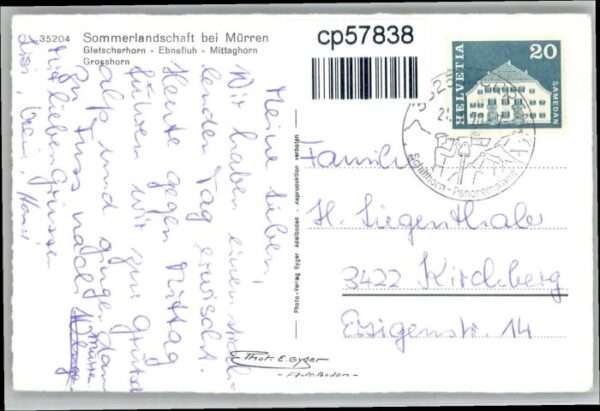 35204 Sommerlandschaft bei Mürren
Gletscherhorn - Ebnefluh - Mittaghorn
Grosshorn
cp57838
HELVETIA
20
SAMEDAN
Schilthorn - Panorama
Meine Lieben,
Wir haben einen strah-
lenden Tag erwischt.
Heute gegen Mittag
fuhren wir zur Grütsch
alp und gingen dann
zu Fuss nach Mürren
Mit lieben Grüssen
Familie
H. Siegenthaler
3422 Kirchberg
Ersigenstr. 14
Photo-Verlag Gyger Adelboden - Reproduktion verboten
Phot. E. Gyger
- Adelboden -